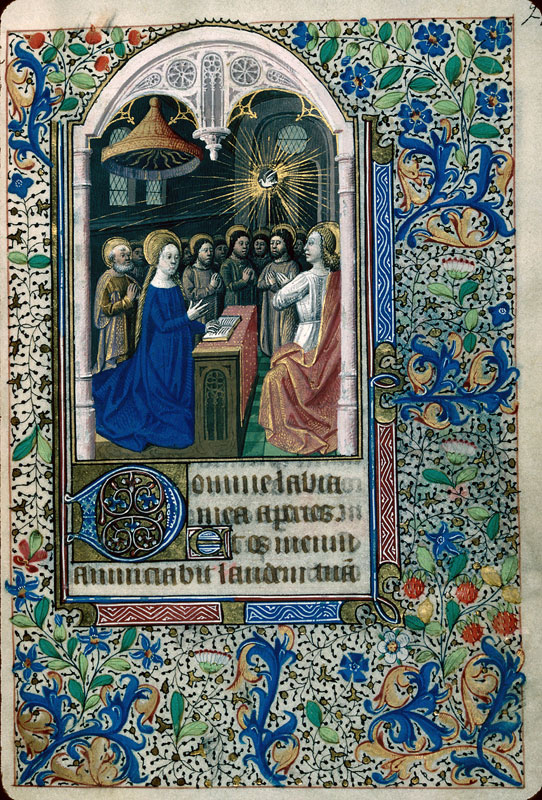 Domine labia
mea aperies
Et os meum
anunciabit laudem tuā